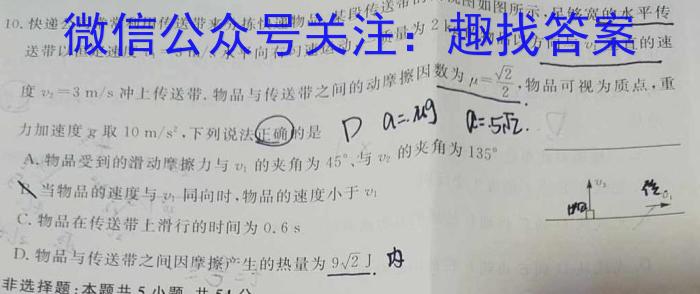 微信公众号关注：趣找答案
10. 快递公
视图如图所示，足够宽的水平传
送带以恒定速度
的速
度 v₂=3 m/s 冲上传送带. 物品与传送带之间的动摩擦因数为 μ=√2/2, 物品可视为质点，重
力加速度 g 取 10 m/s², 下列说法正确的是 D a=μg a=5√2.
A. 物品受到的滑动摩擦力与 v₁ 的夹角为 45°、与 v₂ 的夹角为 135°
当物品的速度与 v₁ 同向时, 物品的速度小于 v₁
v₂
v₁
C. 物品在传送带上滑行的时间为 0.6 s
D. 物品与传送带之间因摩擦产生的热量为 9√2 J 内
非选择题:本题共 5 小题, 共 54 分